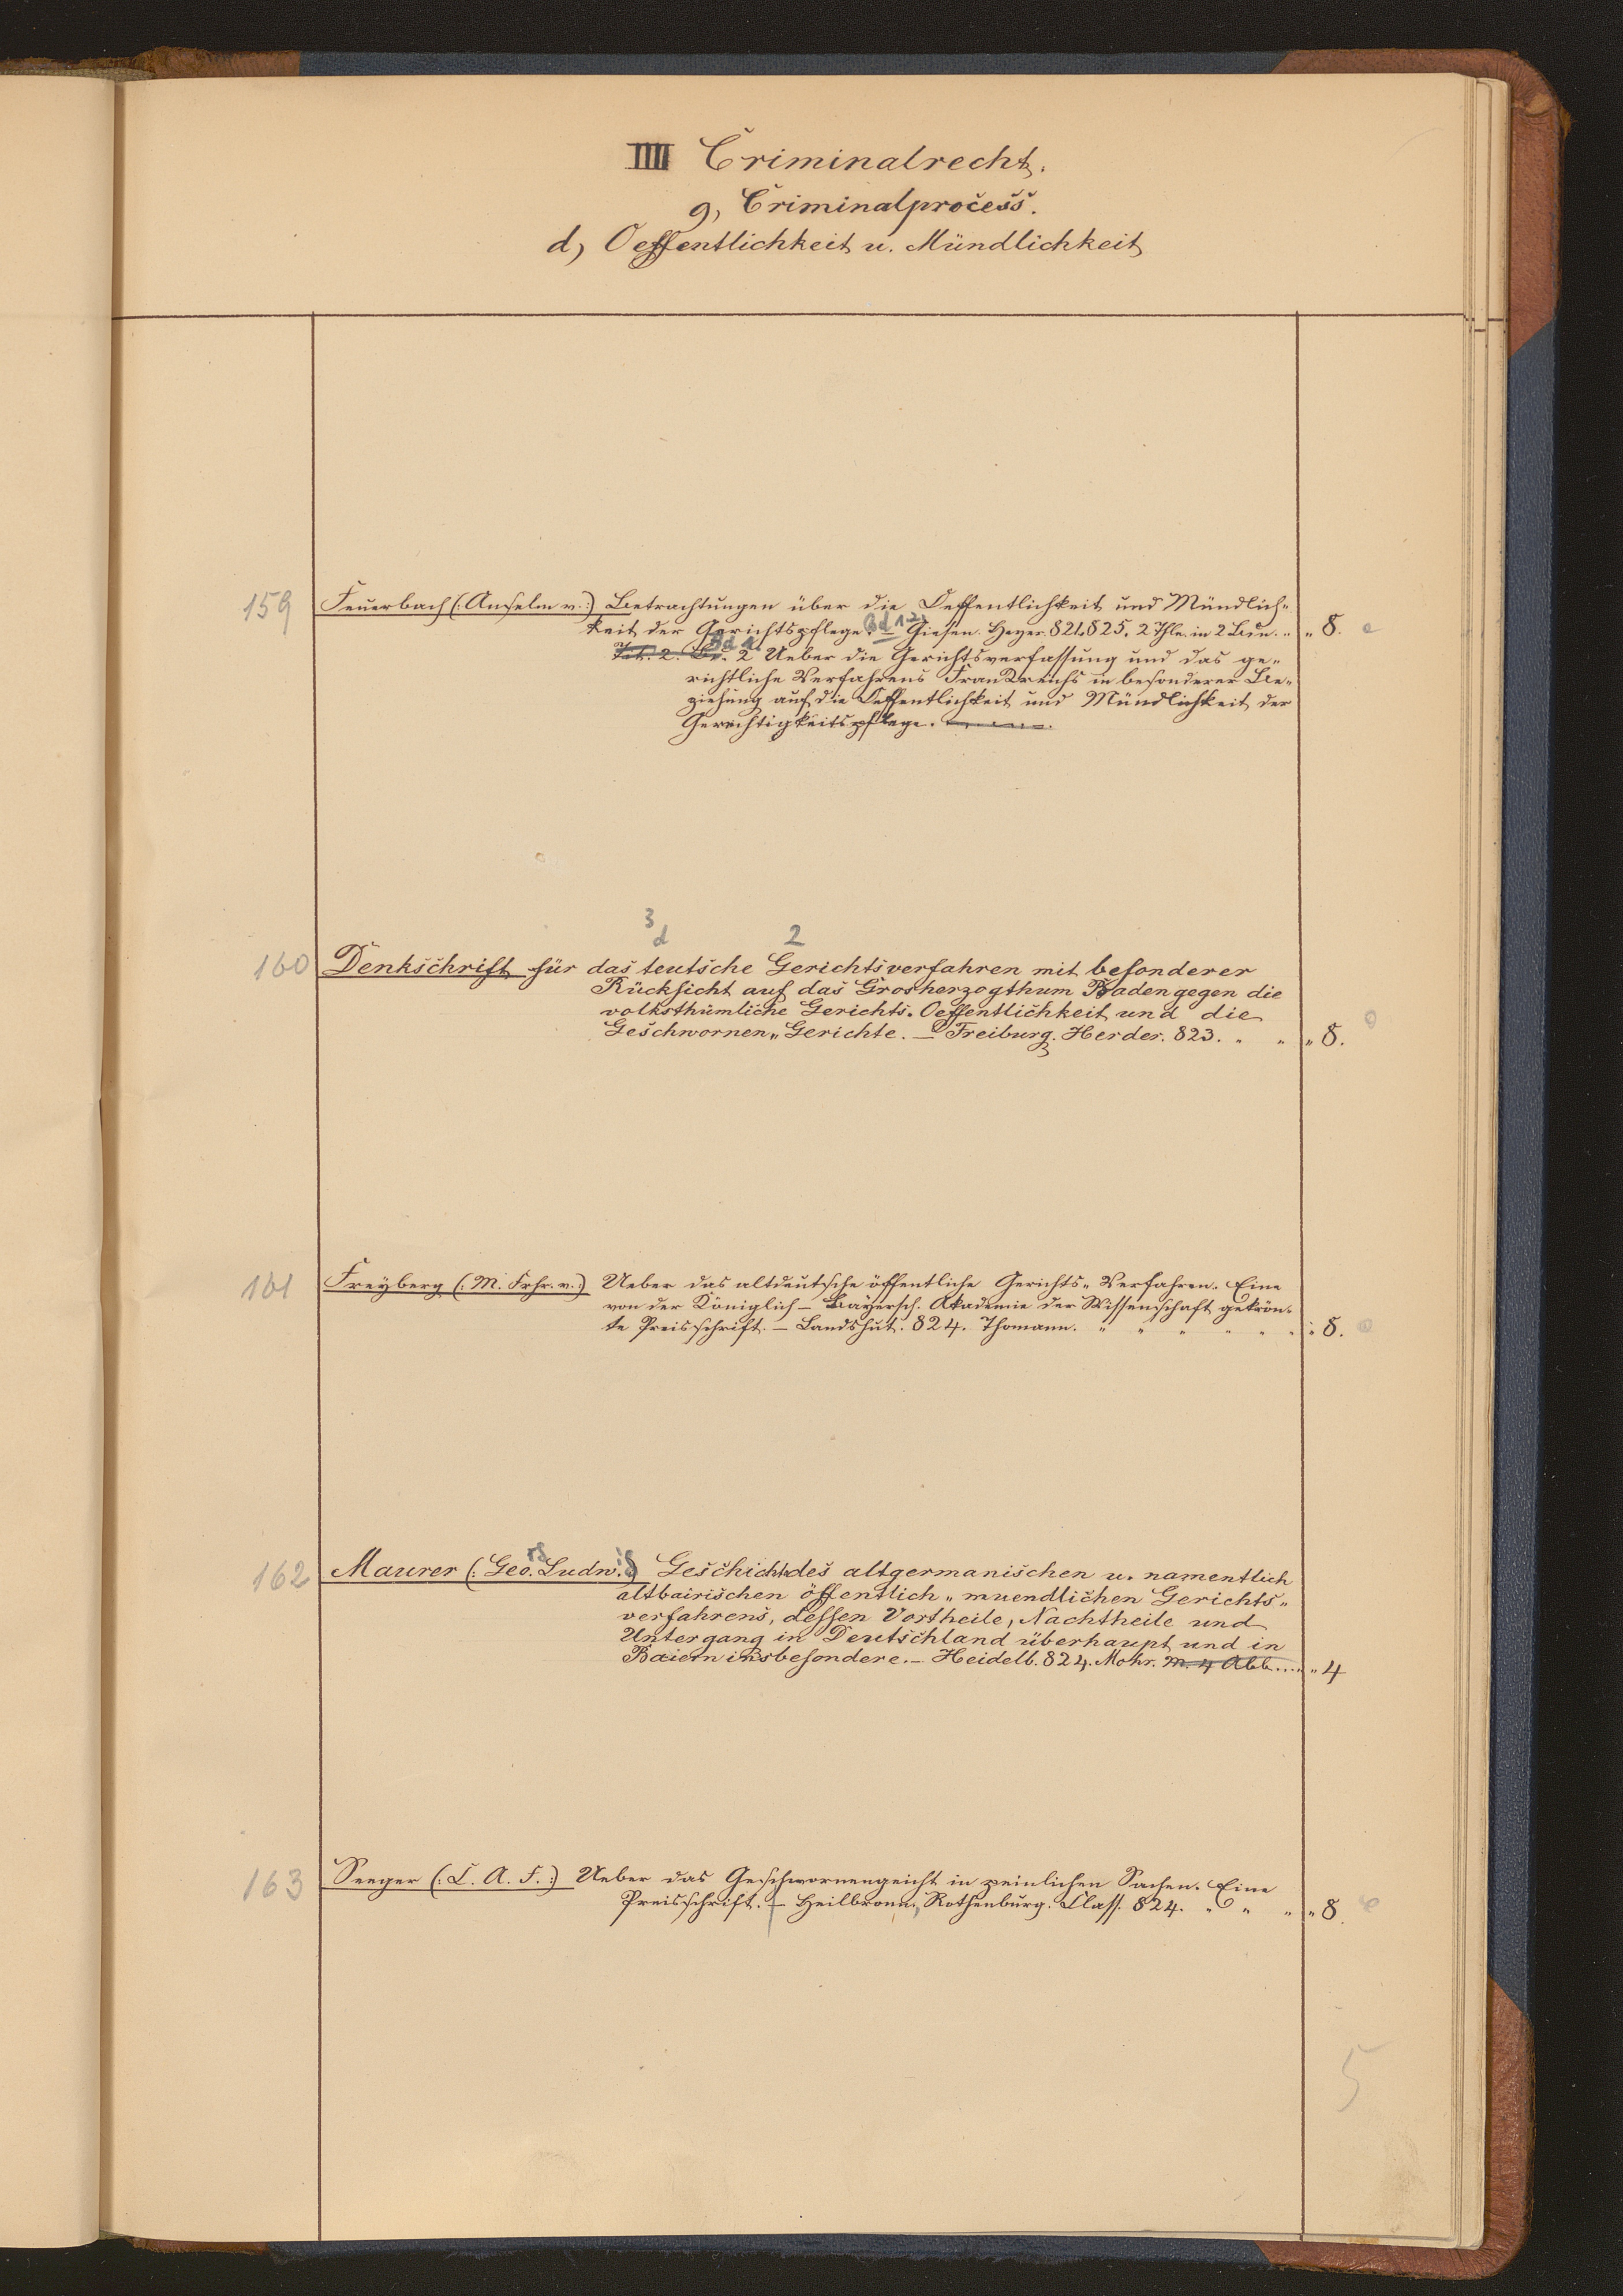 IIII Criminalrecht.
g, Criminalprocess.
d, Oeffentlichkeit u. Mündlichkeit
159 Feuerbach (: Anselm v. :) Betrachtungen über die Oeffentlichkeit und Mündlich-
keit der Gerichtspflege. Bd 1.2 – Giesen. Heyer. 821.825. 2 Thle. in 2 Bdn. " " 8.
Bd 2 Ueber die Gerichtsverfassung und das ge-
richtliche Verfahrens Frankreichs in besonderer Be-
ziehung auf die Oeffentlichkeit und Mündlichkeit der
Gerechtigkeitspflege.
3 d 2
160 Denkschrift für das teutsche Gerichtsverfahren mit besonderer
Rücksicht auf das Grosherzogthum Baden gegen die
volksthümliche Gerichts. Oeffentlichkeit und die
Geschwornen" Gerichte. – Freiburg. Herder. 823. " " " 8.
161 Freyberg (: M. Frhr. v. :) Ueber das altdeutsche öffentliche Gerichts" Verfahren. Eine
von der Königlich – Bayersch. Akademie der Wissenschaft gekrön-
te Preisschrift. – Landshut. 824. Thomann. " " " " " " " 8.
162 Maurer (: Geo. Ludw. :) Geschichte des altgermanischen u. namentlich
altbairischen öffentlich" muendlichen Gerichts"
verfahrens, dessen Vortheile, Nachtheile und
Untergang in Deutschland überhaupt und in
Baiern insbesondere. – Heidelb. 824. Mohr. m. 4 Abb. ... " 4
163 Seeger (: L. A. F. :) Ueber das Geschwornengeicht in peinlichen Sachen. Eine
Preisschrift. – Heilbronn, Rothenburg. Class. 824. " " " " 8.
5